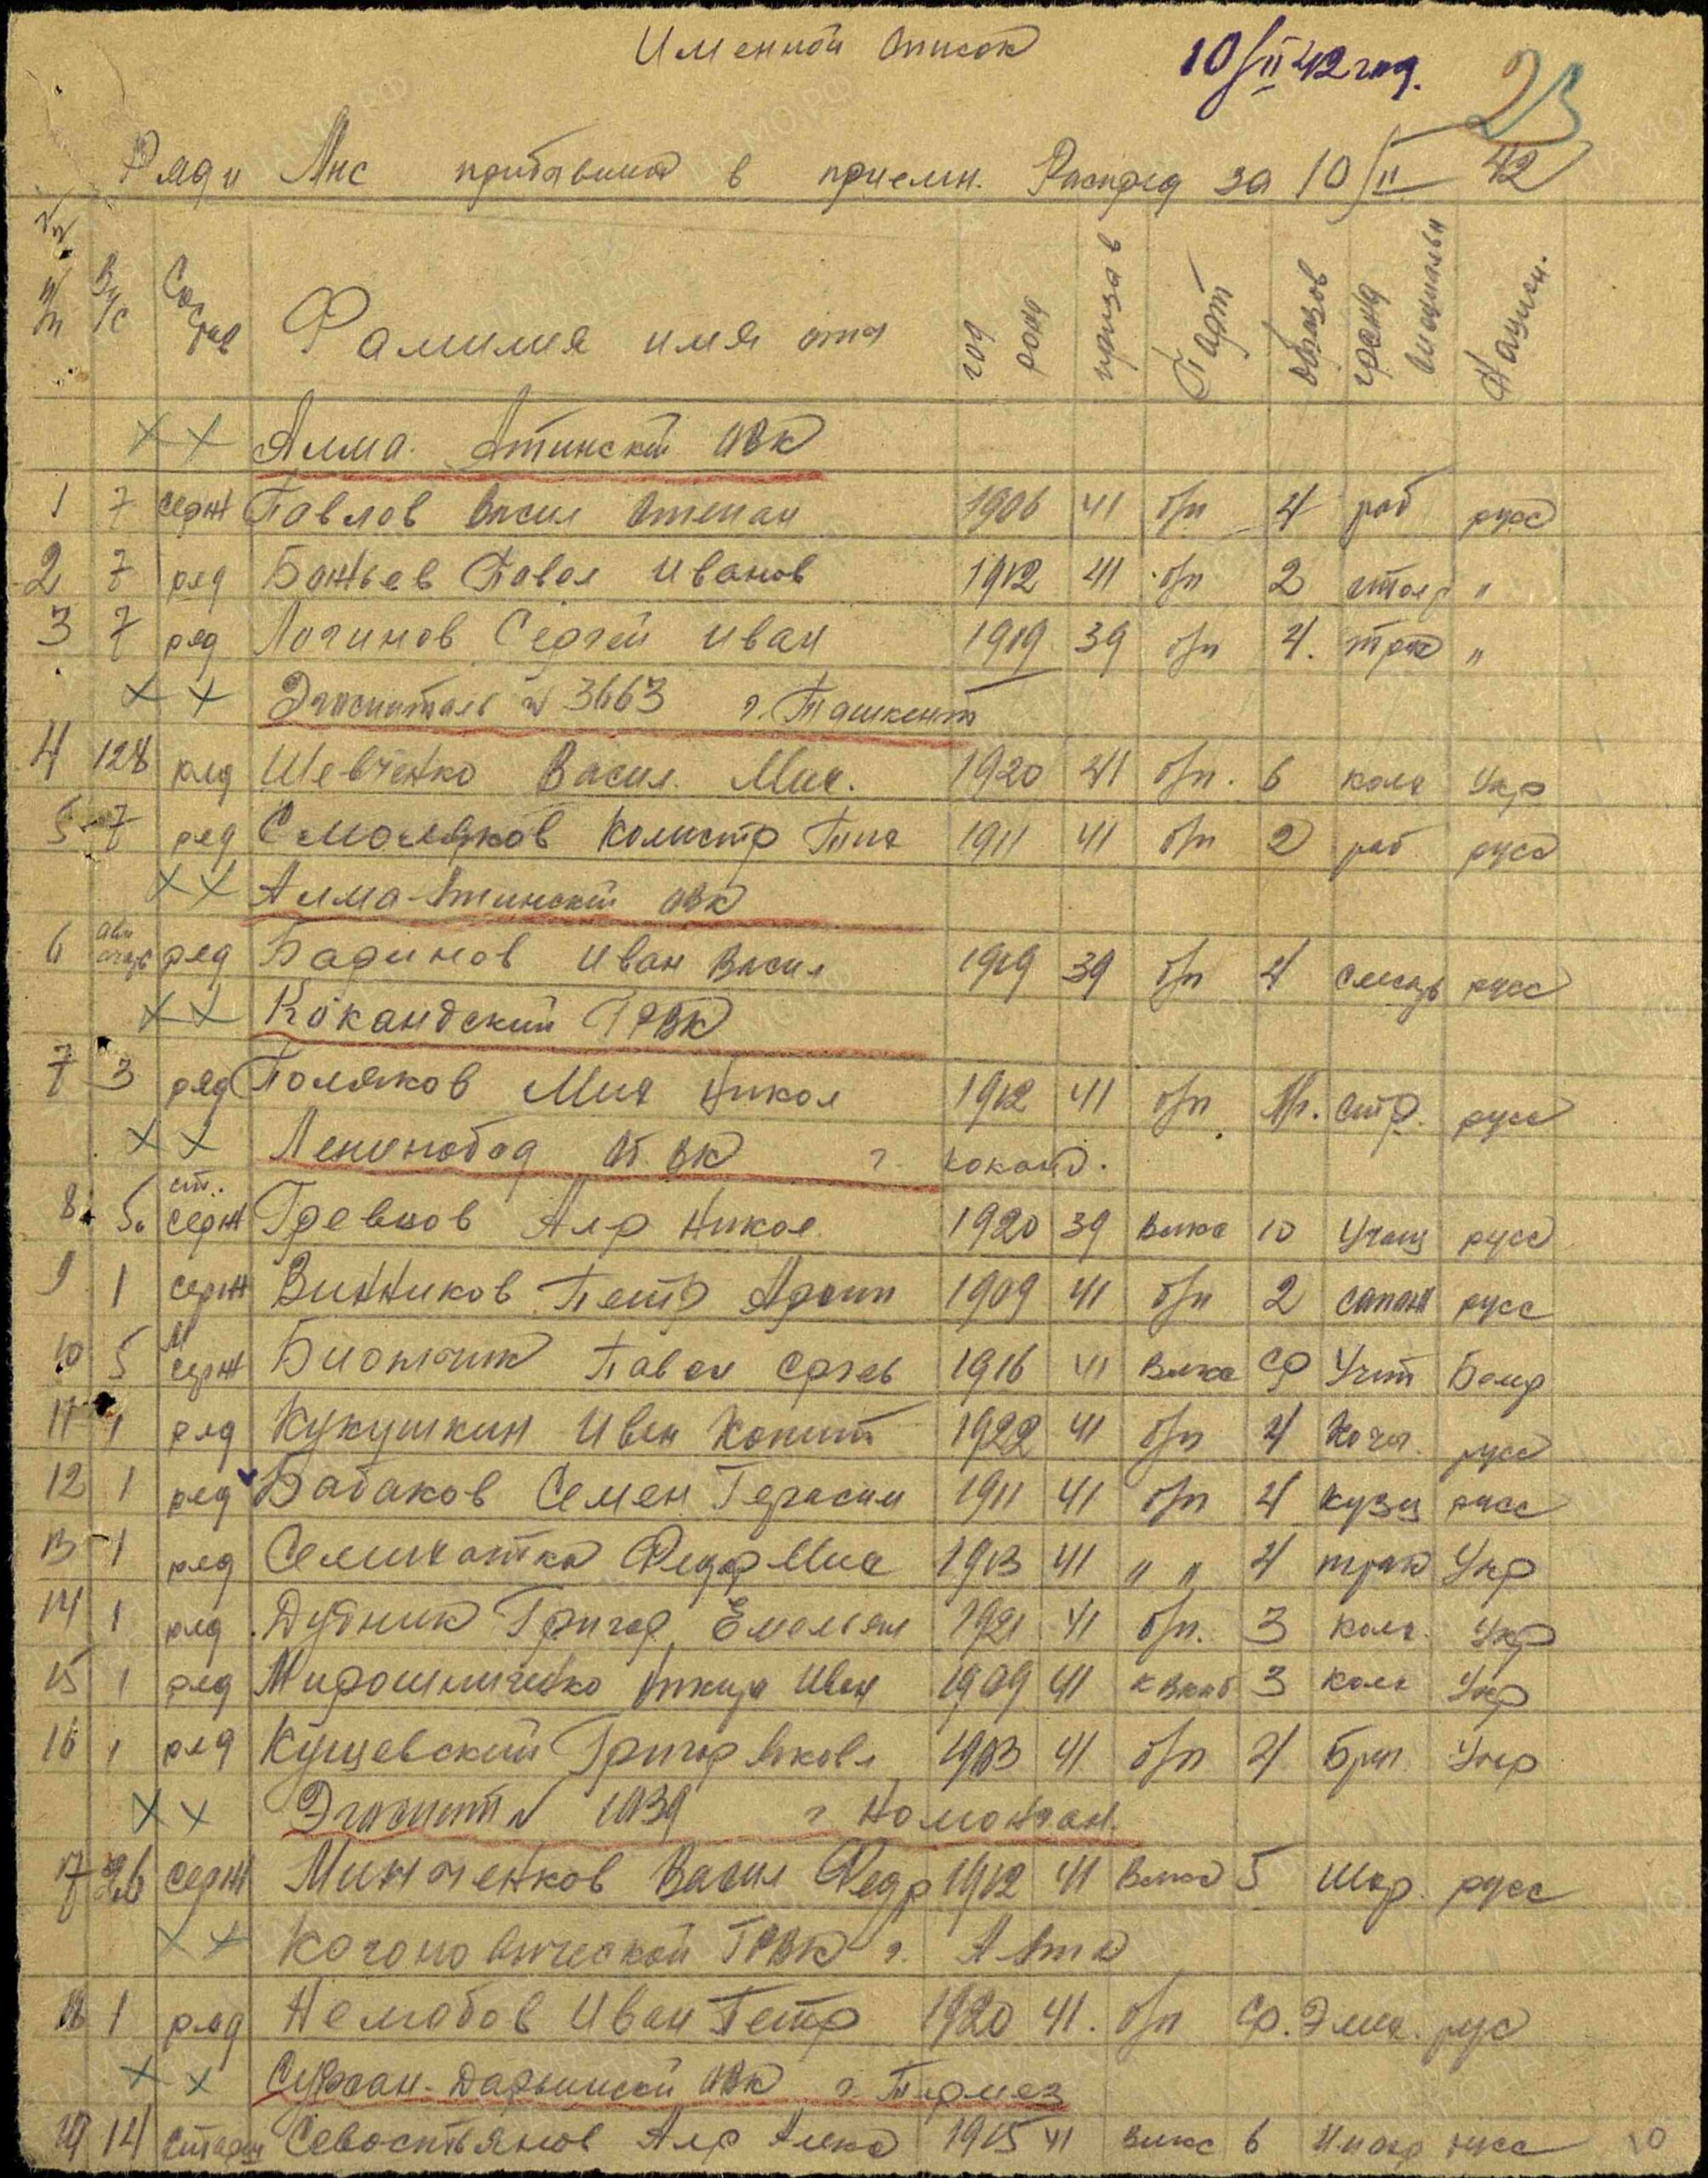 Именной список
10/II 42 год.
23
Ряд и Мнс прибывший в приемн. Распред за 10/II 42
№ п/п ВУС Состав Фамилия имя отч год рожд призыв Парт образов гражд специальн Национ.
Алма-Атинский ОВК
1 7 серж Павлов Васил Степан 1906 41 б/п 4 раб русс
2 7 ряд Бантьев Павел Иванов 1912 41 б/п 2 столяр "
3 7 ряд Логинов Сергей Иван 1919 39 б/п 4. трак "
Эгоспиталь № 3663 г. Ташкент
4 128 ряд Шевченко Васил. Мих. 1920 41 б/п. 6 колх Укр
5 7 ряд Смоляков Калистр Тих 1911 41 б/п 2 раб русс
Алма-Атинский ОВК
6 ряд Баринов Иван Васил 1919 39 б/п 4 слесарь русс
Кокандский ГРВК
7 3 ряд Поляков Мих Никол 1912 41 б/п Н. стр. русс
Ленинабад ОБ. ВК г. Коканд.
8 5 ст. серж Гревцов Алр Никол 1920 39 Влкс 10 Учащ русс
9 1 серж Винников Петр Архип 1909 41 б/п 2 сапож русс
10 5 М серж Павел Сергев 1916 41 Влкс Ср Учит Белор
11 1 ряд Кукушкин Иван Капит 1922 41 б/п 4 Коче. русс
12 1 ряд Бабаков Семен Герасим 1911 41 б/п 4 кузн русс
13 1 ряд Семихатка Федор Мих 1913 41 " " 4 трак Укр
14 1 ряд Дудник Григор Емельян 1921 41 б/п. 3 колх. Укр
15 1 ряд Мирошниченко Иван 1909 41 3 колх Укр
16 1 ряд Кущевский Григор Яковл 1903 41 б/п 4 Бриг Укр
Эгоспит № 1039 г Номонган.
17 26 серж Минченков Васил Федр 1912 41 Влкс 5 Шоф. русс
Когоновический ГРВК г. А Ата
18 1 ряд Нелюбов Иван Петр 1920 41. б/п Ср. Элек. рус
Сурхан-Дарьинский ОВК г. Термез
19 14 Старш Севостьянов Алр Алекс 1915 41 Влкс 6 русс